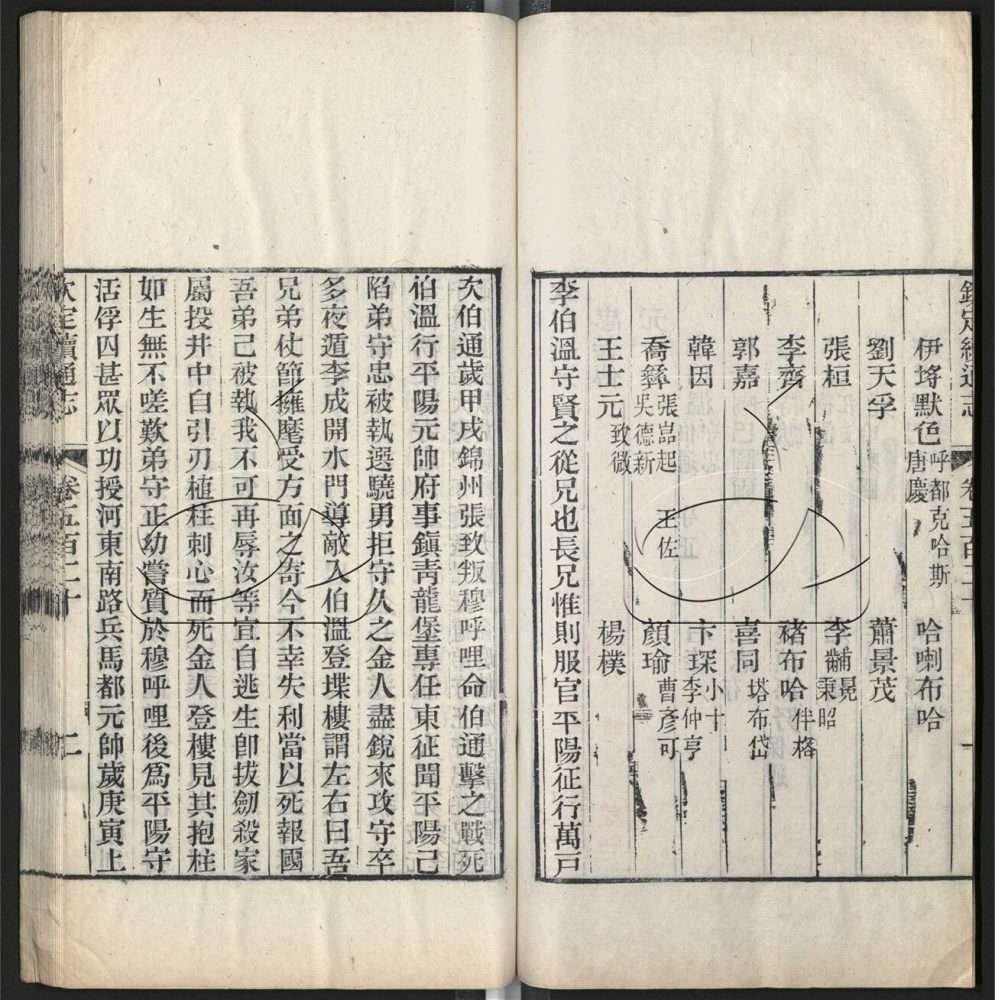 欽定續通志 卷五百二十 一
伊埒默色 呼都克哈斯 唐慶 哈喇布哈
劉天孚 蕭景茂
張桓 李黼 冕 秉昭
李齊 褚布哈 伴格
郭嘉 喜同 塔布岱
韓因 卞琛 小十 李仲亨
喬彝 張嵓起 王佐 吳德新 顏瑜 曹彥可
王士元 致微 楊樸
李伯溫守賢之從兄也長兄惟則服官平陽征行萬戶
次伯通歲甲戌錦州張致叛穆呼哩命伯通擊之戰死
伯溫行平陽元帥府事鎮青龍堡專任東征聞平陽已
陷弟守忠被執選驍勇拒守久之金人盡銳來攻守卒
多夜遁李成開水門導敵入伯溫登堞樓謂左右曰吾
兄弟仗節擁麾受方面之寄今不幸失利當以死報國
吾弟已被執我不可再辱汝等宜自逃生卽拔劍殺家
屬投井中自引刃植柱刺心而死金人登樓見其抱柱
如生無不嗟歎弟守正幼嘗質於穆呼哩後爲平陽守
活俘囚甚眾以功授河東南路兵馬都元帥歲庚寅上
欽定續通志 卷五百二十 二